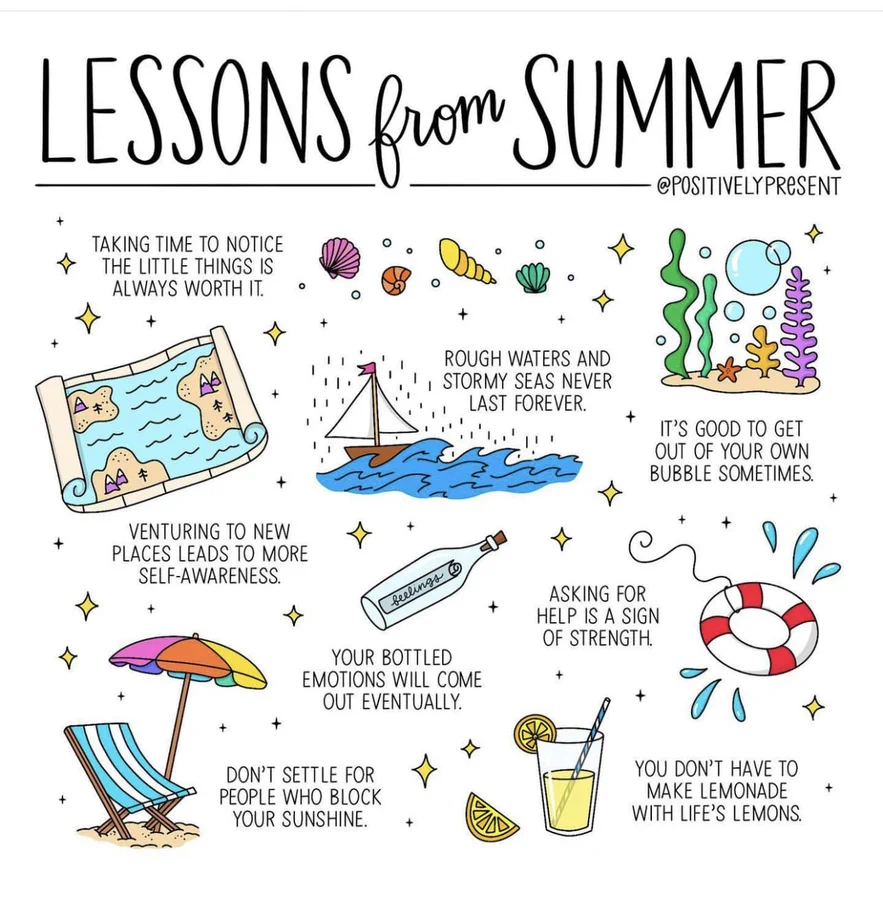 LESSONS from SUMMER
@POSITIVELYPRESENT
TAKING TIME TO NOTICE
THE LITTLE THINGS IS
ALWAYS WORTH IT.
ROUGH WATERS AND
STORMY SEAS NEVER
LAST FOREVER.
IT'S GOOD TO GET
OUT OF YOUR OWN
BUBBLE SOMETIMES.
VENTURING TO NEW
PLACES LEADS TO MORE
SELF-AWARENESS.
feelings
YOUR BOTTLED
EMOTIONS WILL COME
OUT EVENTUALLY.
ASKING FOR
HELP IS A SIGN
OF STRENGTH.
DON'T SETTLE FOR
PEOPLE WHO BLOCK
YOUR SUNSHINE.
YOU DON'T HAVE TO
MAKE LEMONADE
WITH LIFE'S LEMONS.